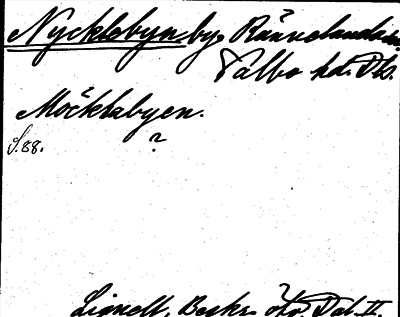 Nycklebyn by, Rännelanda sn.
Valbo hd. Ds.
Möcklabyen.
S. 88. ?
Lignell, Beskr. öfv. Dal. II.